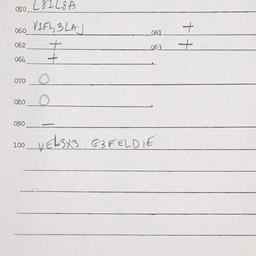 050 L8IL8A
060 VIFL3LAJ 061 +
062 + 063 +
064 +
070 O
080 O
090 —
100 VEL3X3 G3FELDIE